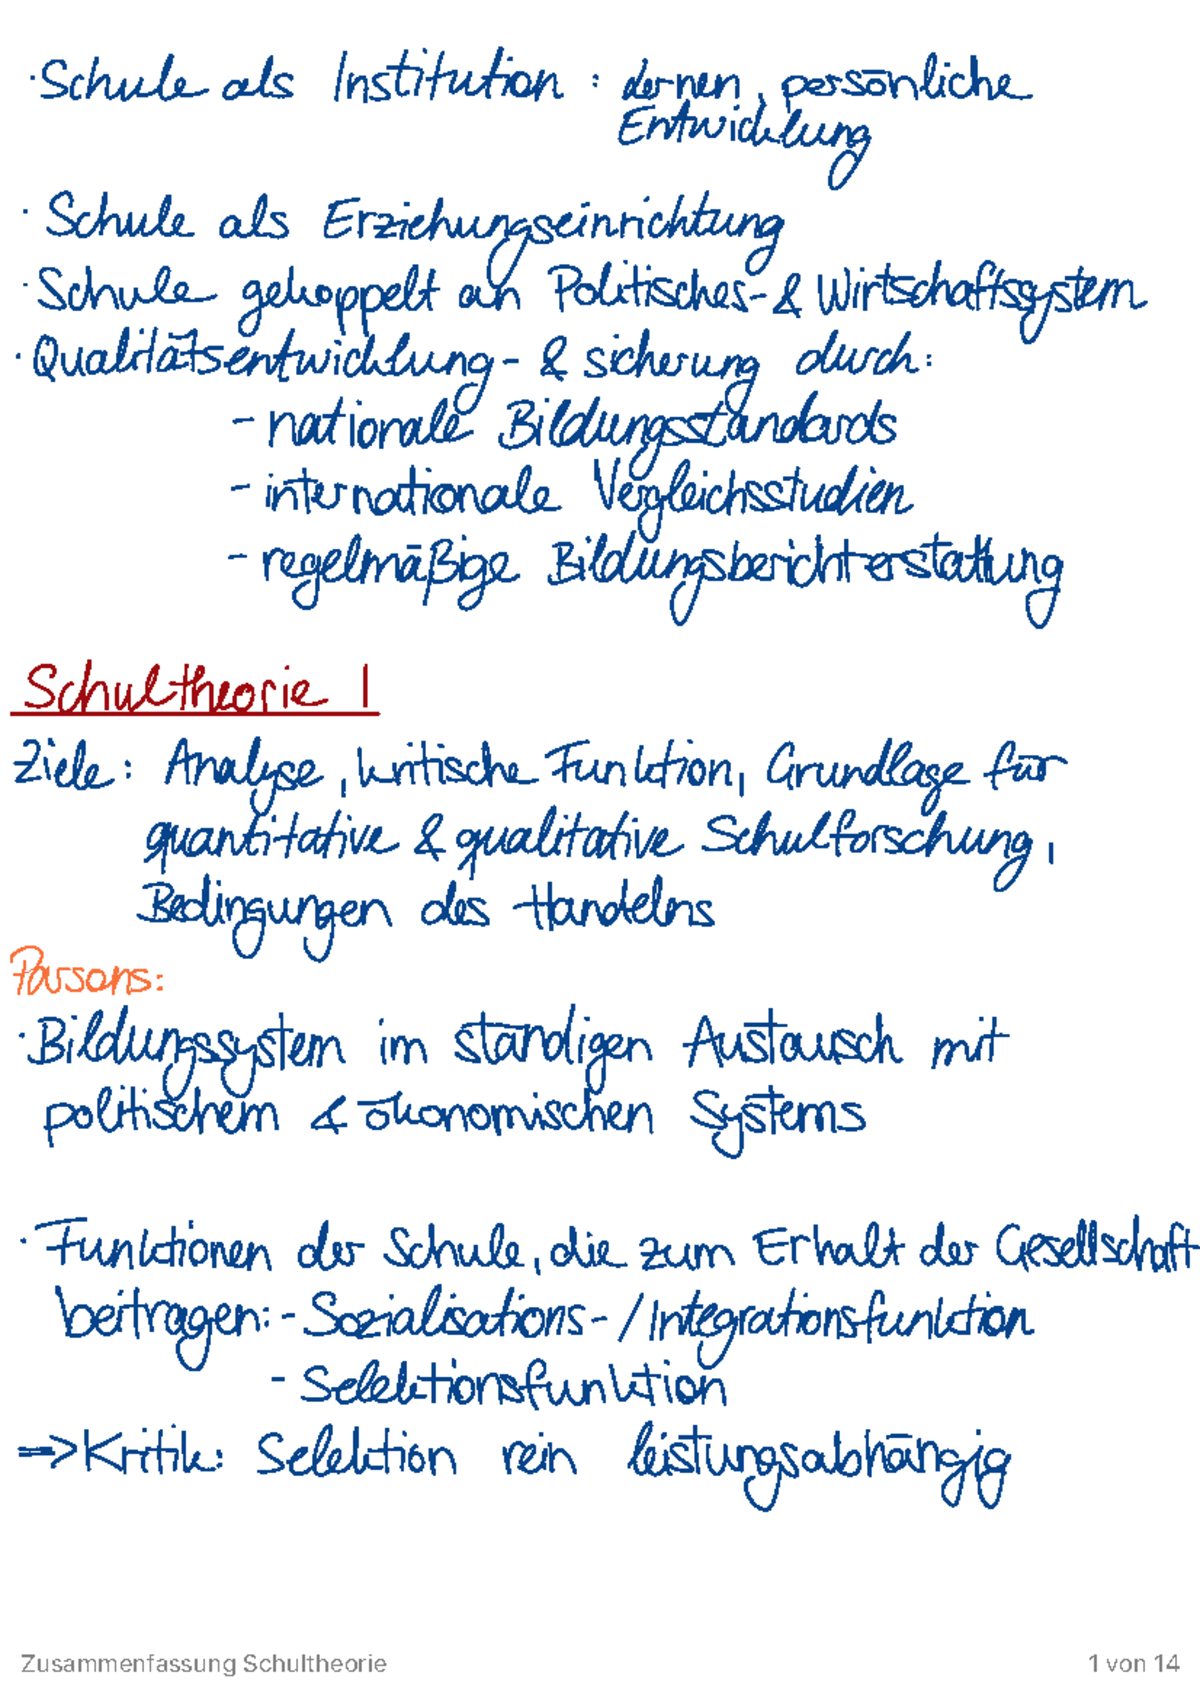 · Schule als Institution : Lernen, persönliche
Entwicklung
· Schule als Erziehungseinrichtung
· Schule gekoppelt an Politisches- & Wirtschaftssystem
· Qualitätsentwicklung- & sicherung durch:
- nationale Bildungsstandards
- internationale Vergleichsstudien
- regelmäßige Bildungsberichterstattung
Schultheorie I
Ziele: Analyse, kritische Funktion, Grundlage für
quantitative & qualitative Schulforschung,
Bedingungen des Handelns
Parsons:
· Bildungssystem im ständigen Austausch mit
politischem & ökonomischen Systems
· Funktionen der Schule, die zum Erhalt der Gesellschaft
beitragen: - Sozialisations- / Integrationsfunktion
- Selektionsfunktion
=> Kritik: Selektion rein leistungsabhängig
Zusammenfassung Schultheorie 1 von 14